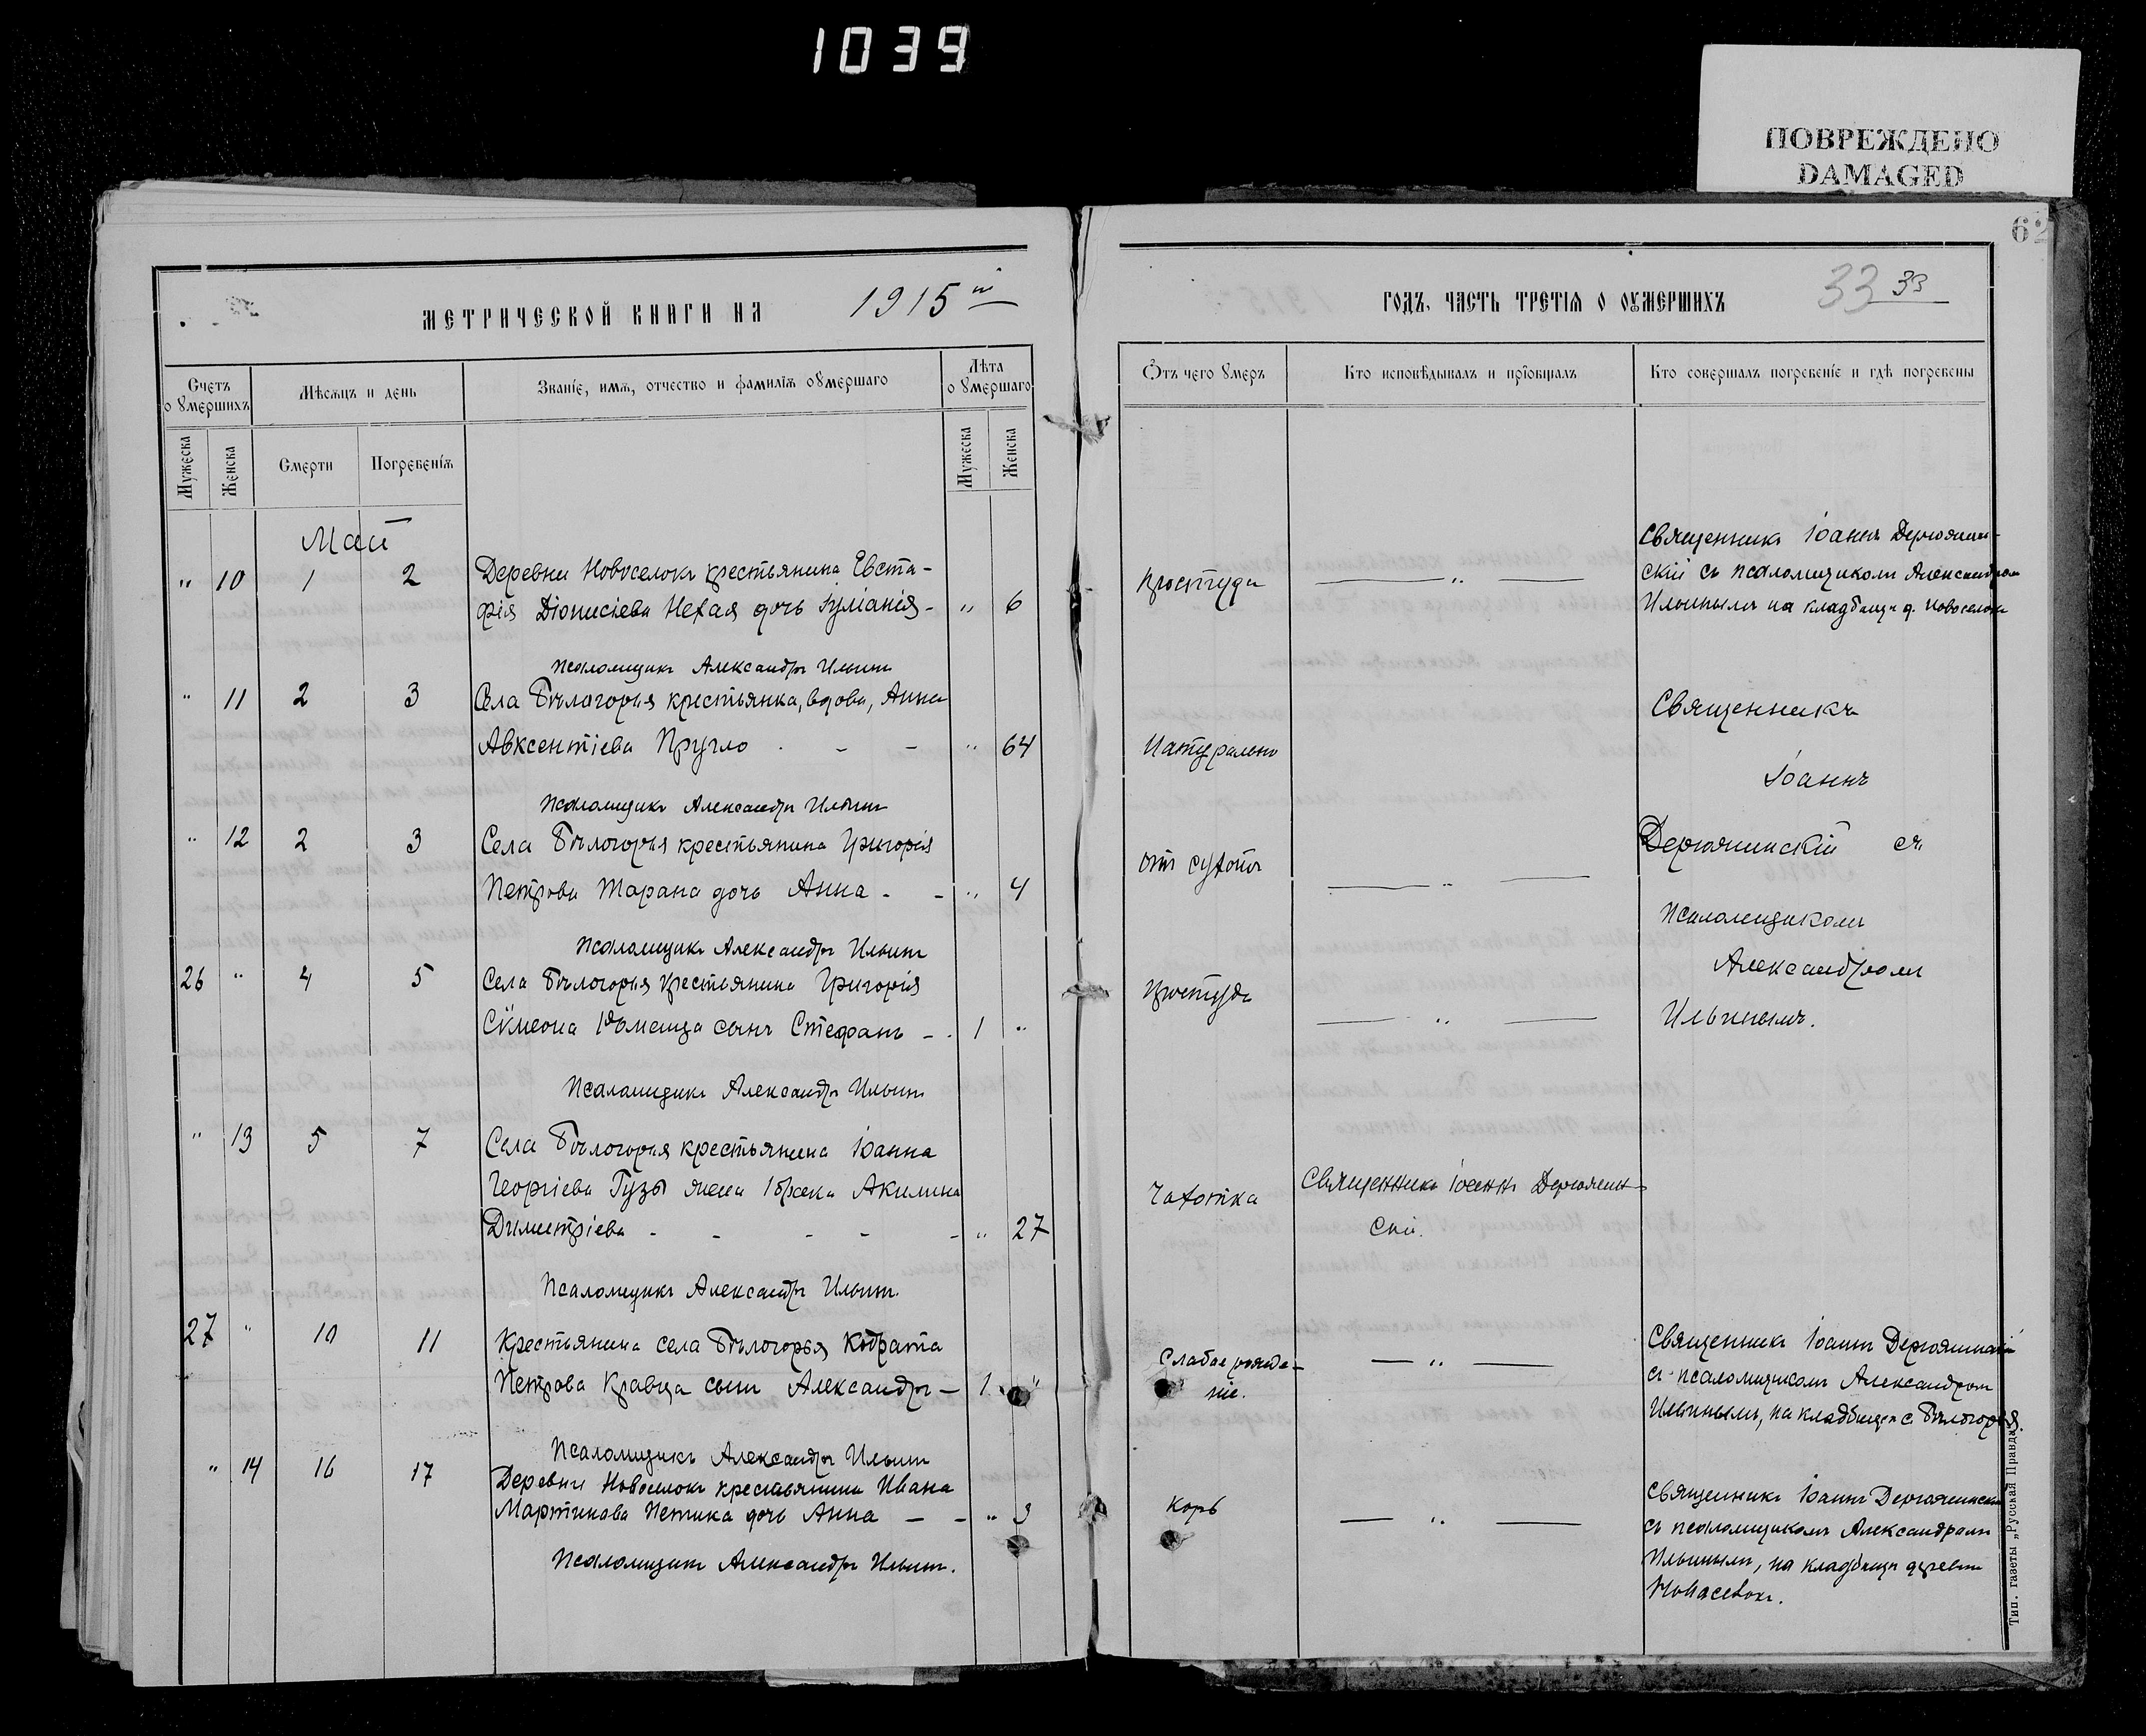 1039
ПОВРЕЖДЕНО
DAMAGED
62
МЕТРИЧЕСКОЙ КНИГИ НА 1915й
Счетъ о умершихъ
Мѣсяцъ и день
Званіе, имя, отчество и фамилія оумершаго
Лѣта оумершаго
Мужеска
Женска
Смерти
Погребенія
Мужеска
Женска
Май
" 10 1 2 Деревни Новоселокъ крестьянина Евста-
фія Діонисіева Нехая дочь Іуліанія - " 6
Псаломщикъ Александръ Ильинъ
" 11 2 3 Села Бѣлогорья крестьянка, вдова, Анна
Авксентіева Пругло - - " 64
Псаломщикъ Александръ Ильинъ
" 12 2 3 Села Бѣлогорья крестьянина Григорія
Петрова Тарана дочь Анна - - " 4
Псаломщикъ Александръ Ильинъ
26 " 4 5 Села Бѣлогорья крестьянина Григорія
Сѵмеона сынъ Стефанъ - - 1 "
Псаломщикъ Александръ Ильинъ
" 13 5 7 Села Бѣлогорья крестьянина Іоанна
Георгіева Гузы жена Акилина
Димитріева - - - - - " 27
Псаломщикъ Александръ Ильинъ.
27 " 10 11 Крестьянина села Бѣлогорья Кодрата
Петрова Кравца сынъ Александръ - 1 "
Псаломщикъ Александръ Ильинъ
" 14 16 17 Деревни Новоселокъ крестьянина Ивана
Мартинова Петика дочь Анна - - " 3
Псаломщикъ Александръ Ильинъ.
ГОДЪ, ЧАСТЬ ТРЕТІЯ О ОУМЕРШИХЪ
33 33
Ѿтъ чего умеръ
Кто исповѣдывалъ и пріобщалъ
Кто совершалъ погребеніе и гдѣ погребены
Простуда
— " —
Священникъ Іоаннъ
скій съ псаломщикомъ Александромъ
Ильинымъ на кладбищѣ д. Новоселокъ
Натурально
Священникъ
Іоаннъ
отъ сухотъ
— " —
съ
Псаломщикомъ
Александромъ
Ильинымъ.
Простуда
— " —
Чахотка
Священникъ Іоаннъ
скій.
Слабое рожде-
ніе.
— " —
Священникъ Іоаннъ
съ псаломщикомъ Александромъ
Ильинымъ, на кладбищѣ с. Бѣлогорья
Корь
— " —
Священникъ Іоаннъ
съ псаломщикомъ Александромъ
Ильинымъ, на кладбищѣ деревни
Тип. газеты „Русская Правда“